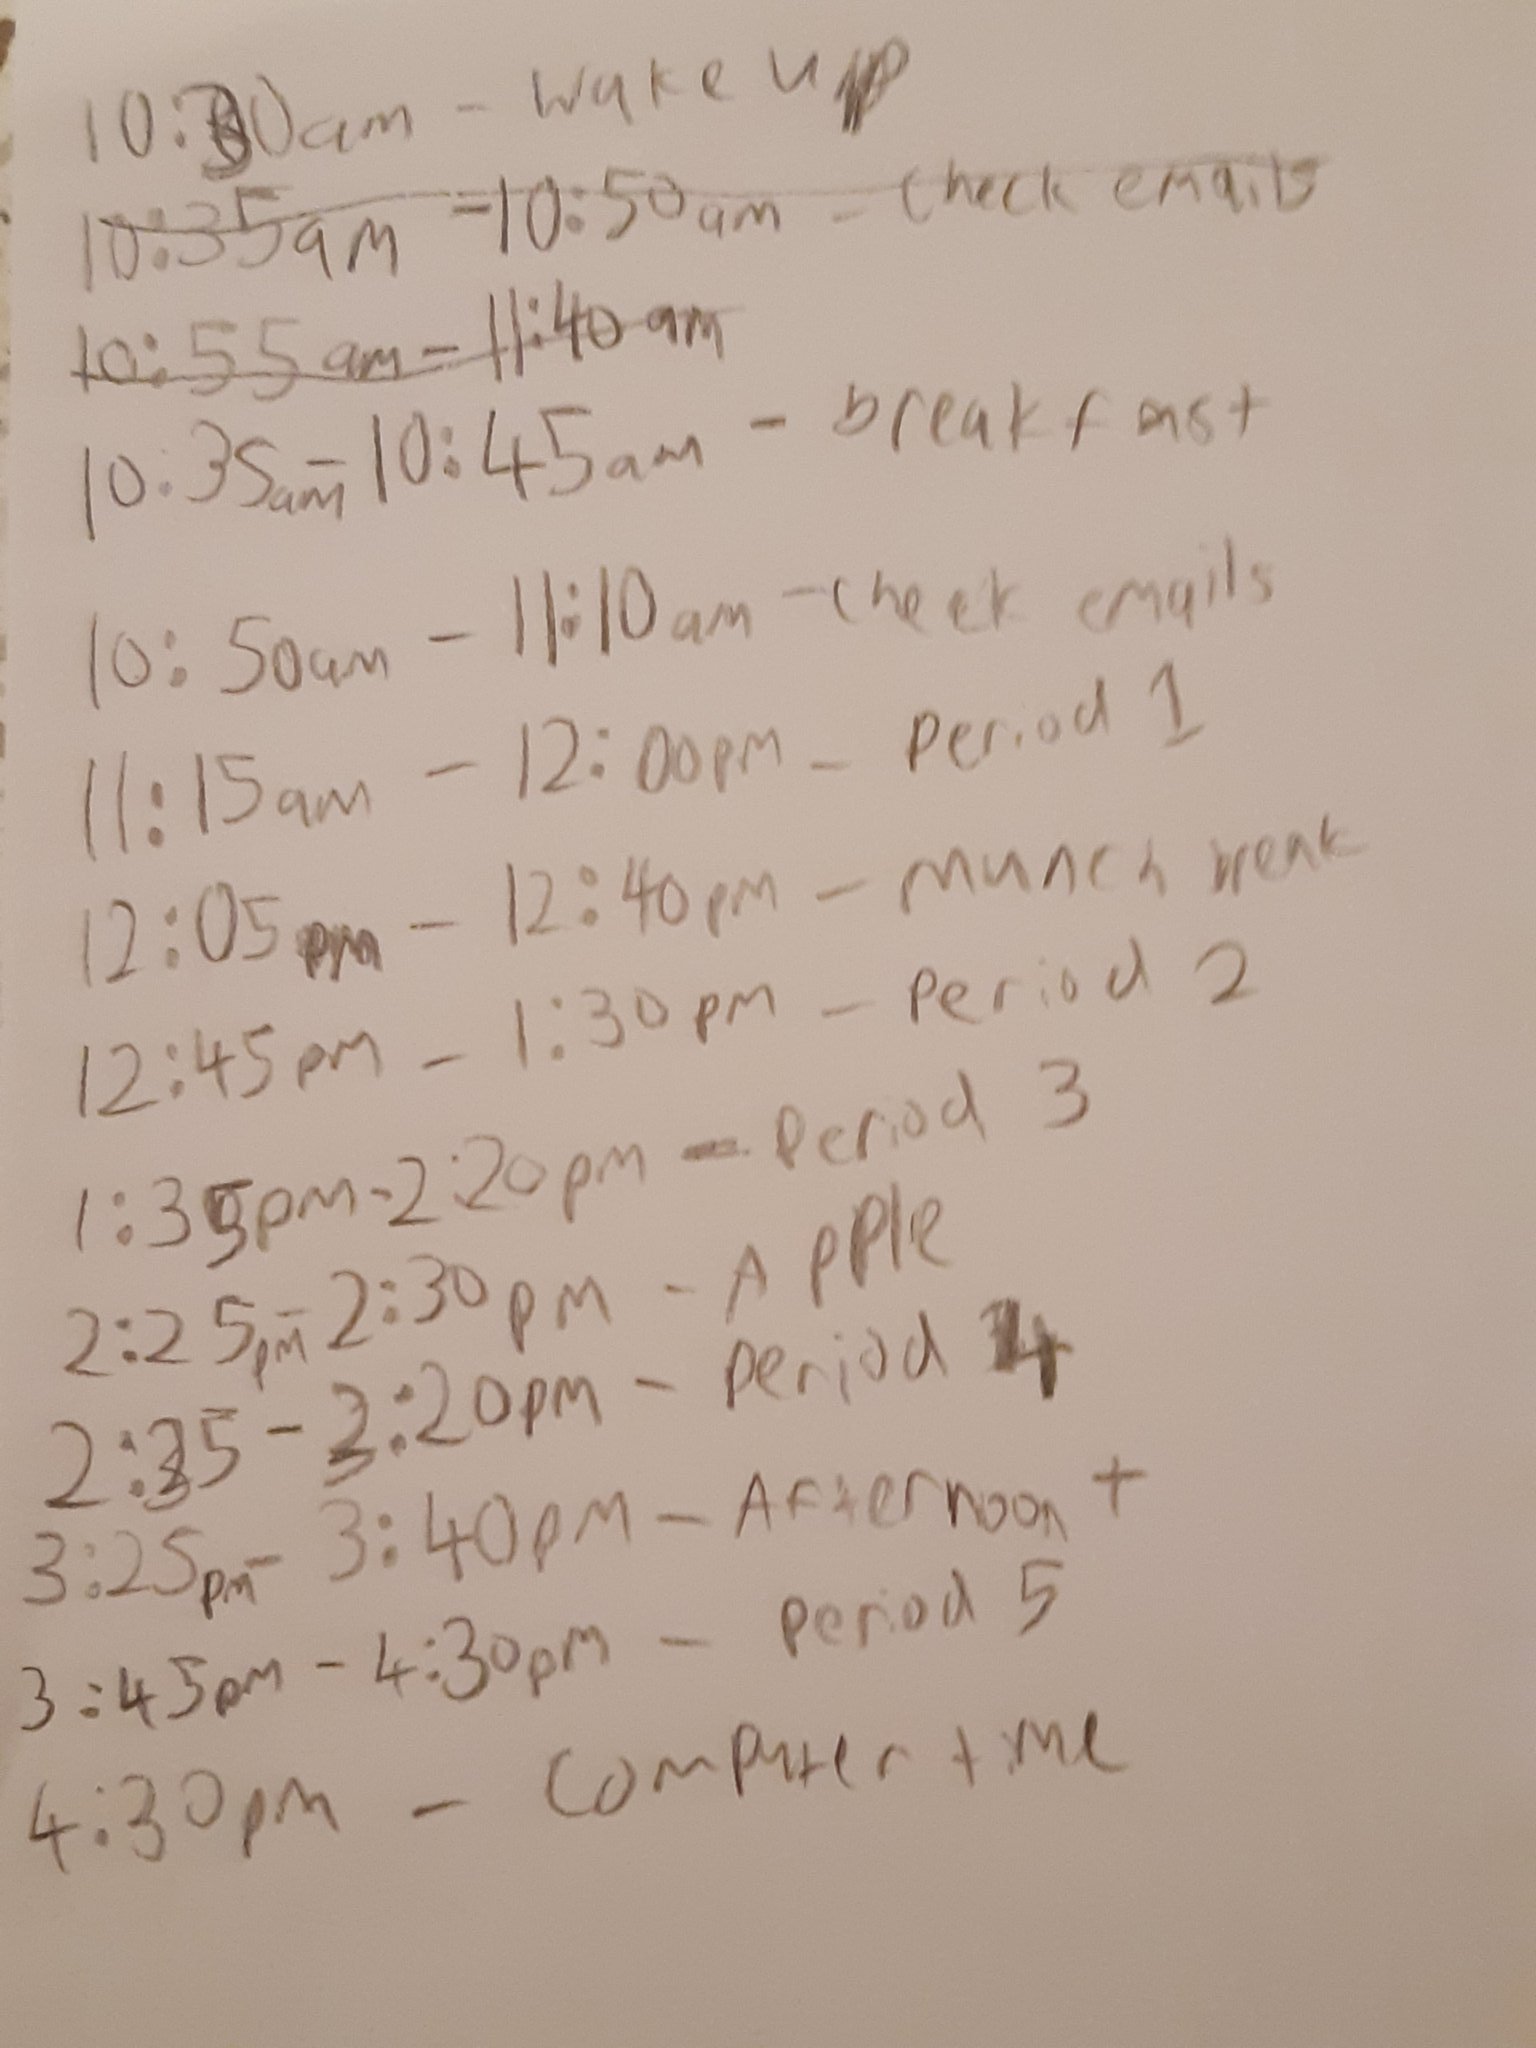 10:30am - wake up
10:35am - 10:50am - check emails
10:55am - 11:40am
10:35am - 10:45am - breakfast
10:50am - 11:10am - check emails
11:15am - 12:00pm - Period 1
12:05pm - 12:40pm - munch break
12:45pm - 1:30pm - Period 2
1:35pm - 2:20pm - Period 3
2:25pm - 2:30pm - Apple
2:35 - 3:20pm - Period 4
3:25pm - 3:40pm - Afternoon t
3:45pm - 4:30pm - Period 5
4:30pm - Computer time